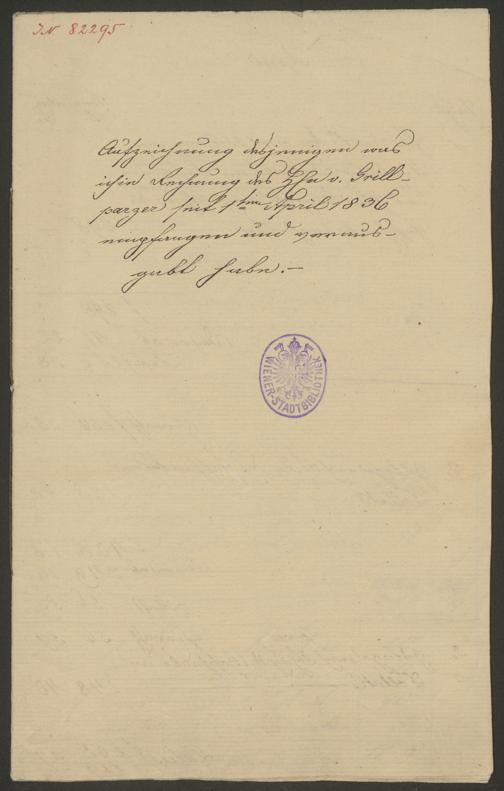 IN 82295
Aufzeichnung desjenigen was
ich in Rechnung des Hrn v. Grill-
parzer seit 1ten April 1836
empfangen und veraus-
gabt habe.-
WIENER-STADTBIBLIOTHEK